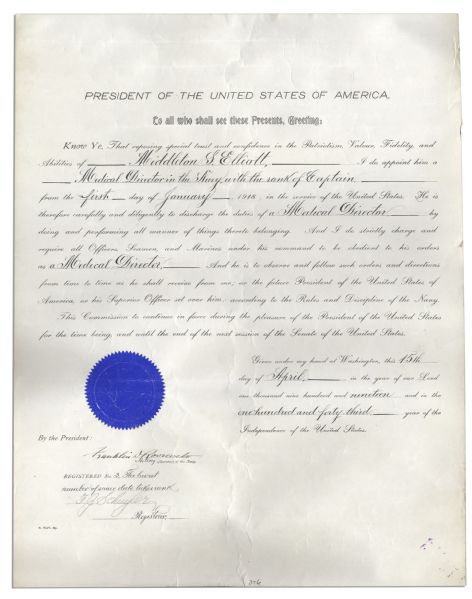 PRESIDENT OF THE UNITED STATES OF AMERICA,
To all who shall see these Presents, Greeting:
Know Ye, That reposing special trust and confidence in the Patriotism, Valour, Fidelity, and
Abilities of Middleton S. Elliott, I do appoint him a
Medical Director in the Navy with the rank of Captain
from the first day of January 1918 in the service of the United States. He is
therefore carefully and diligently to discharge the duties of a Medical Director by
doing and performing all manner of things thereto belonging. And I do strictly charge and
require all Officers, Seamen, and Marines under his command to be obedient to his orders
as a Medical Director. And he is to observe and follow such orders and directions
from time to time as he shall receive from me, or the future President of the United States of
America, or his Superior Officer set over him, according to the Rules and Discipline of the Navy.
This Commission to continue in force during the pleasure of the President of the United States
for the time being, and until the end of the next session of the Senate of the United States.
Given under my hand at Washington, this 15th
day of April, in the year of our Lord
one thousand nine hundred and nineteen and in the
one hundred and forty third year of the
Independence of the United States.
By the President:
Franklin D. Roosevelt
Acting Secretary of the Navy.
REGISTERED No. 2, The lowest
number of same date takes rank
Registrar.
326